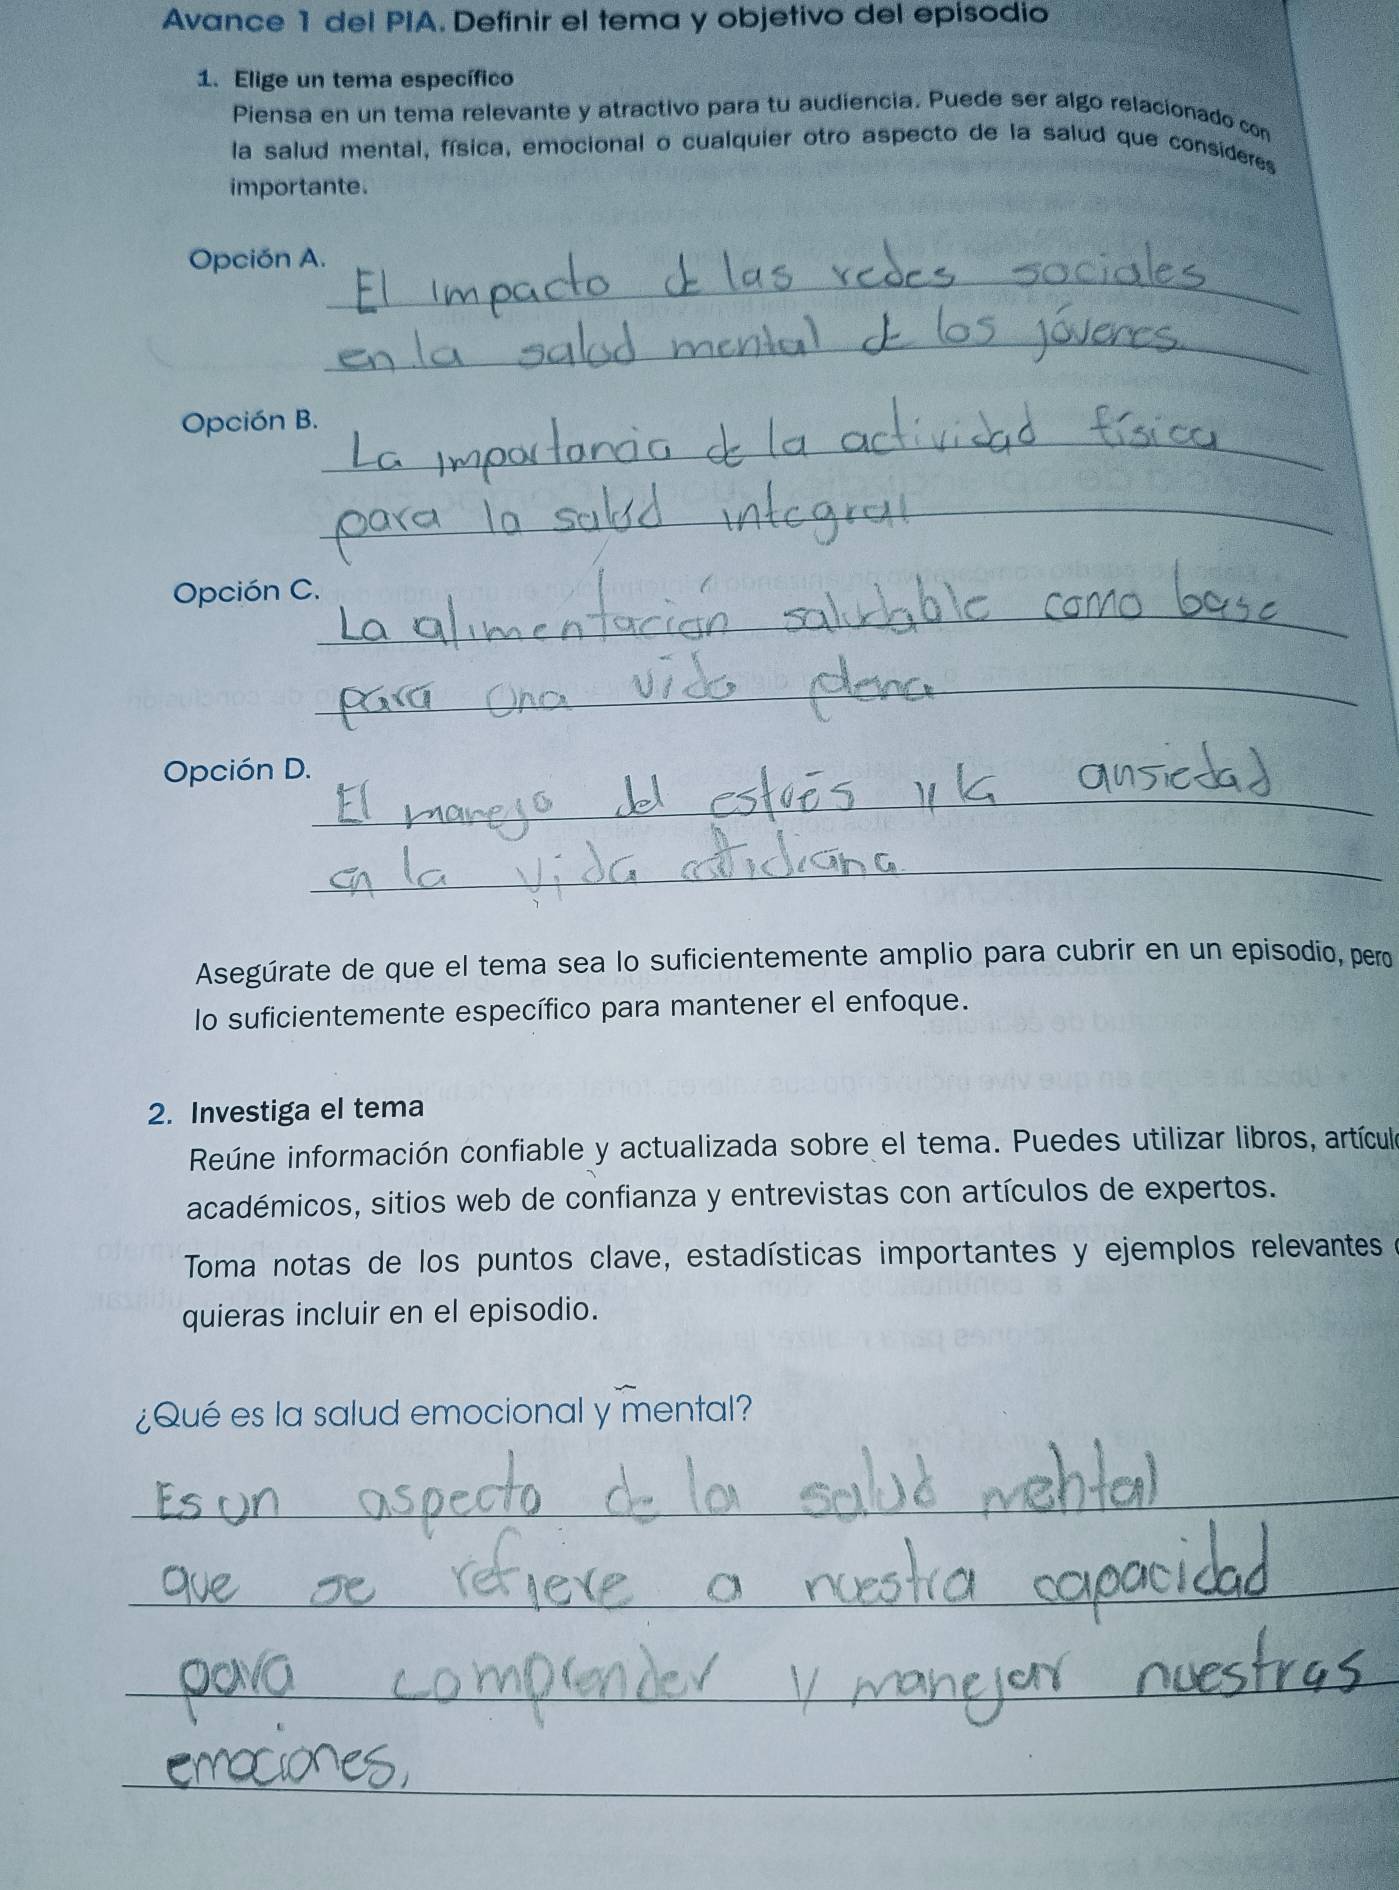 Avance 1 del PIA. Definir el tema y objetivo del episodio
1. Elige un tema específico
Piensa en un tema relevante y atractivo para tu audiencia. Puede ser algo relacionado con
la salud mental, física, emocional o cualquier otro aspecto de la salud que consideres
importante.
Opción A.
El impacto de las redes sociales
en la salud mental de los jóvenes.
Opción B.
La importancia de la actividad física
para la salud integral
Opción C.
La alimentación saludable como base
para una vida plena
Opción D.
El manejo del estrés y la ansiedad
en la vida cotidiana.
Asegúrate de que el tema sea lo suficientemente amplio para cubrir en un episodio, pero
lo suficientemente específico para mantener el enfoque.
2. Investiga el tema
Reúne información confiable y actualizada sobre el tema. Puedes utilizar libros, artícul
académicos, sitios web de confianza y entrevistas con artículos de expertos.
Toma notas de los puntos clave, estadísticas importantes y ejemplos relevantes
quieras incluir en el episodio.
¿Qué es la salud emocional y mental?
Es un aspecto de la salud mental
que se refiere a nuestra capacidad
para comprender y manejar nuestras
emociones.